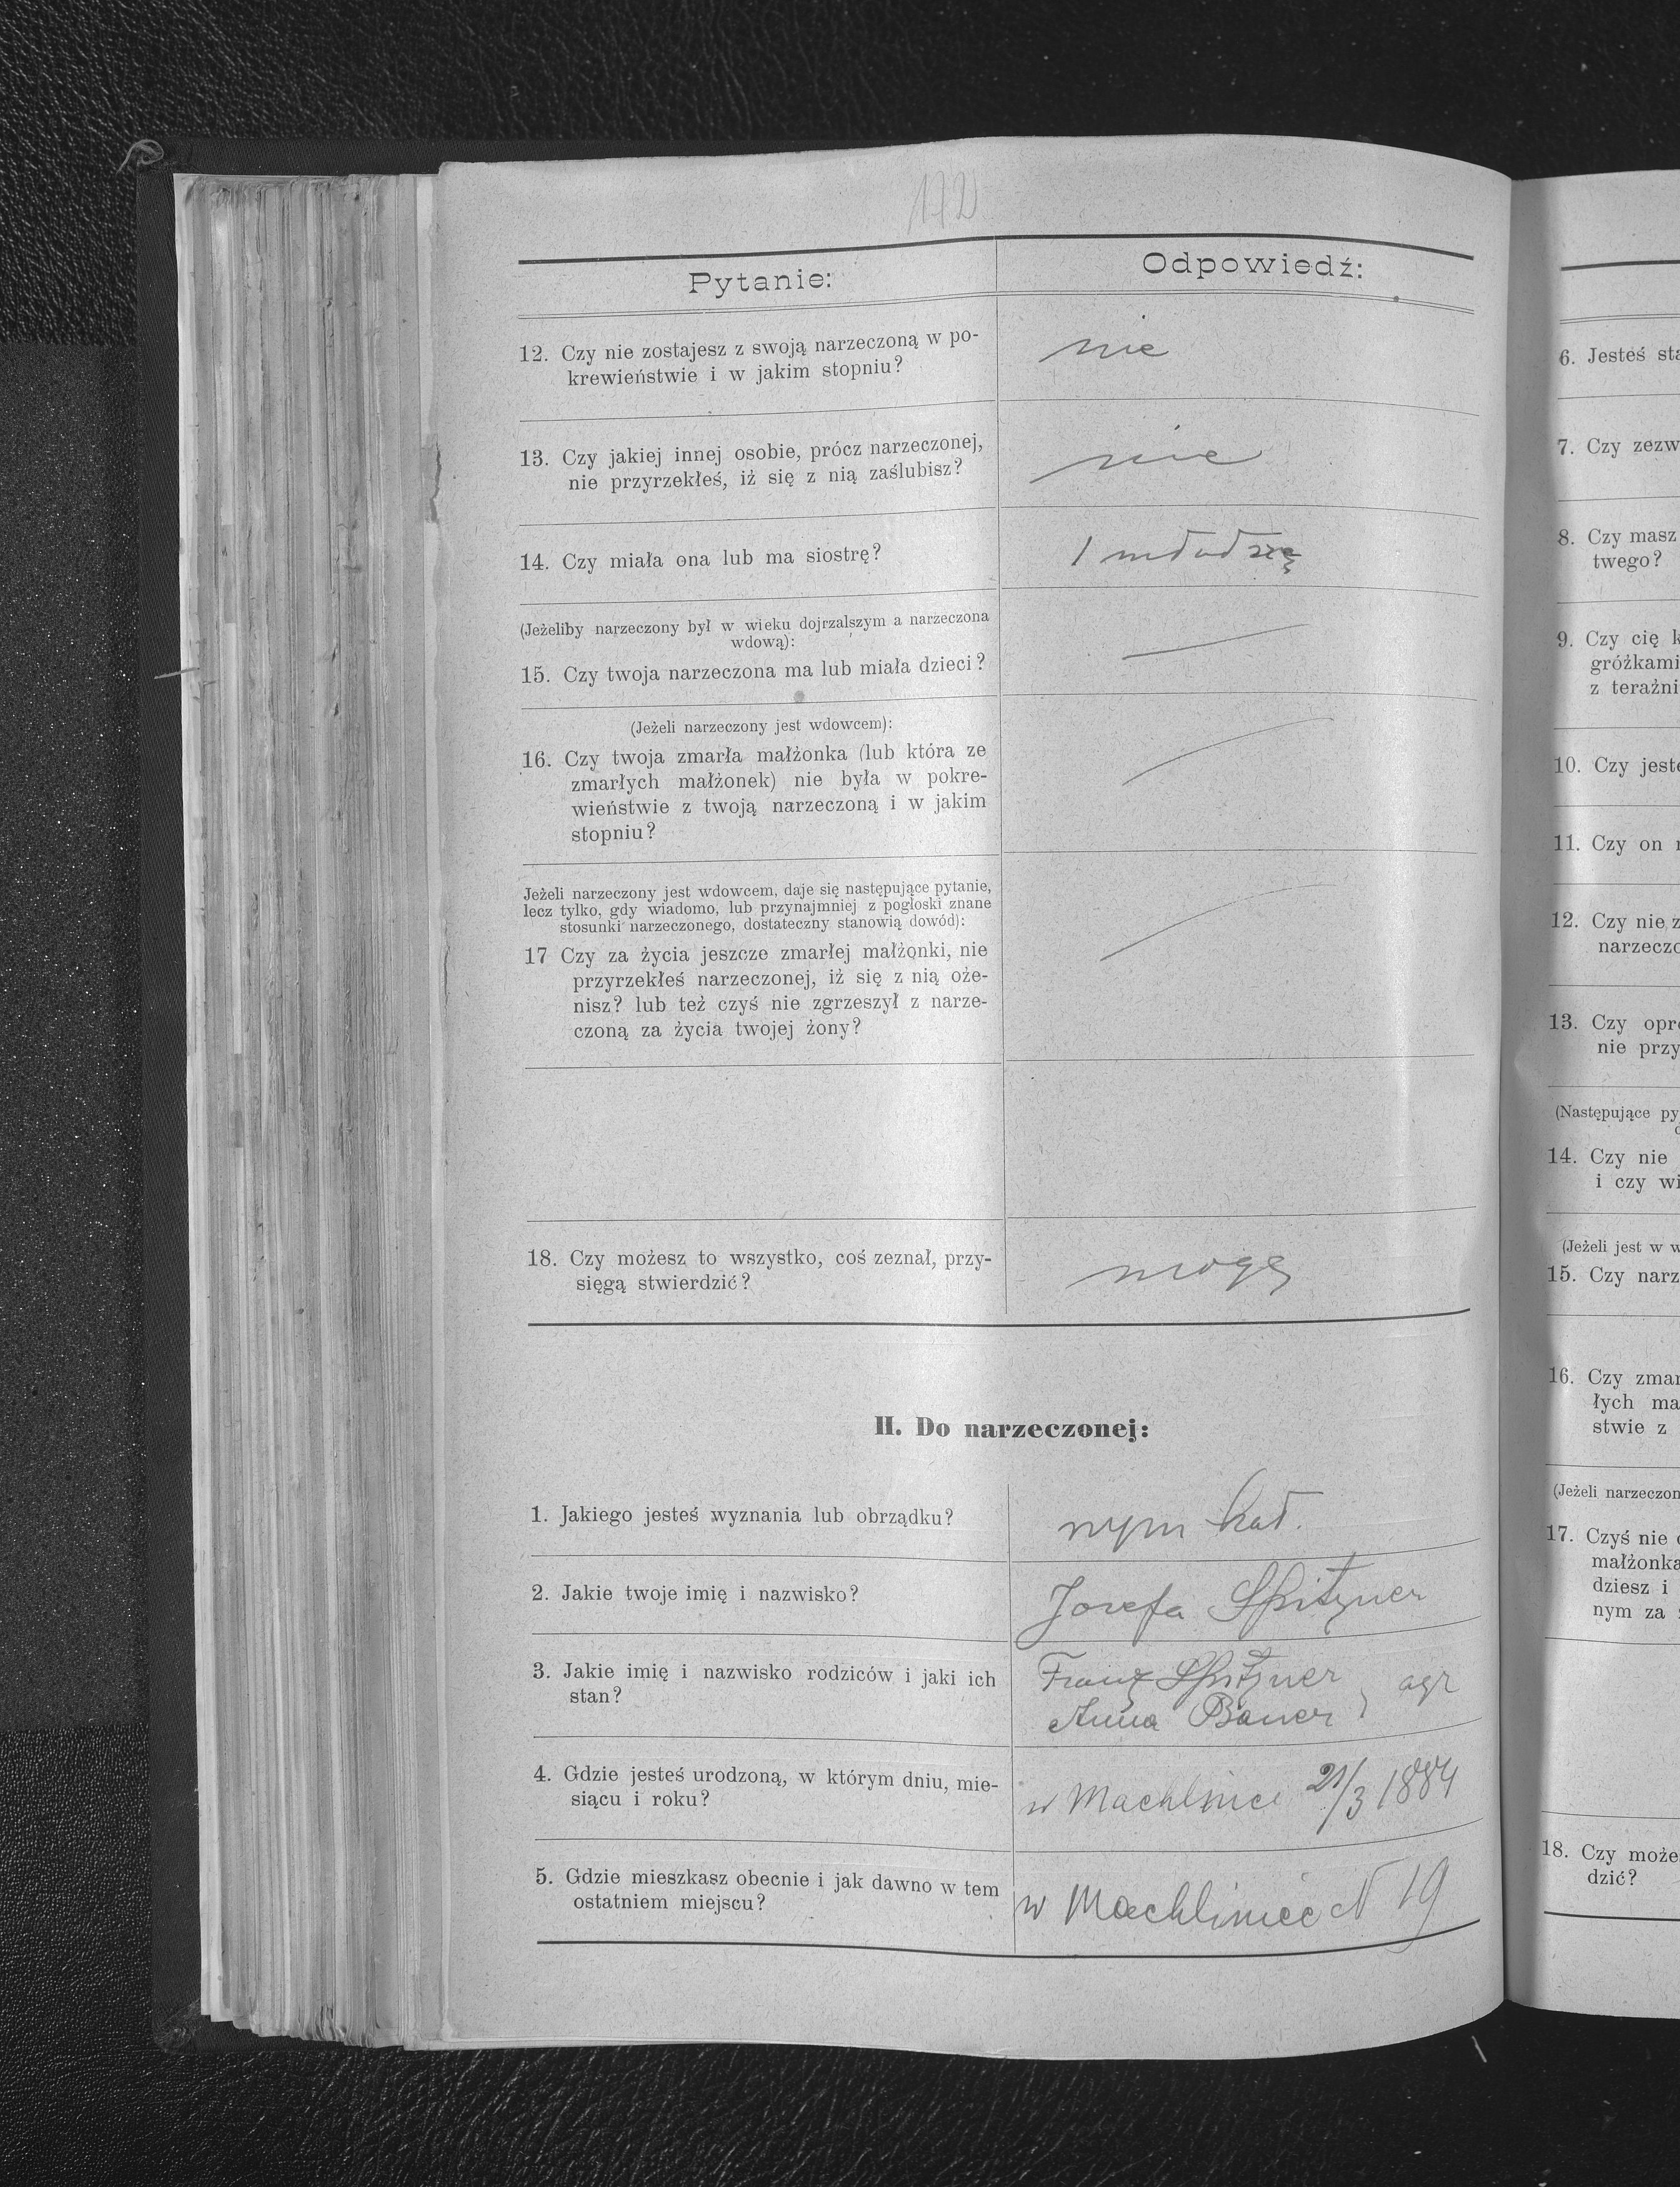 172
Pytanie:
Odpowiedź:
12. Czy nie zostajesz z swoją narzeczoną w po-
krewieństwie i w jakim stopniu?
nie
13. Czy jakiej innej osobie, prócz narzeczonej,
nie przyrzekłeś, iż się z nią zaślubisz?
nie
14. Czy miała ona lub ma siostrę?
1 młodszą
(Jeżeliby narzeczony był w wieku dojrzalszym a narzeczona
wdową):
15. Czy twoja narzeczona ma lub miała dzieci?
(Jeżeli narzeczony jest wdowcem):
16. Czy twoja zmarła małżonka (lub która ze
zmarłych małżonek) nie była w pokre-
wieństwie z twoją narzeczoną i w jakim
stopniu?
Jeżeli narzeczony jest wdowcem, daje się następujące pytanie,
lecz tylko, gdy wiadomo, lub przynajmniej z pogłoski znane
stosunki narzeczonego, dostateczny stanowią dowód):
17 Czy za życia jeszcze zmarłej małżonki, nie
przyrzekłeś narzeczonej, iż się z nią oże-
nisz? lub też czyś nie zgrzeszył z narze-
czoną za życia twojej żony?
18. Czy możesz to wszystko, coś zeznał, przy-
sięgą stwierdzić?
mogę
II. Do narzeczonej:
1. Jakiego jesteś wyznania lub obrządku?
rzym kat.
2. Jakie twoje imię i nazwisko?
Josefa Spitzner
3. Jakie imię i nazwisko rodziców i jaki ich
stan?
Franz Spitzner
Anna Bauer, agr
4. Gdzie jesteś urodzoną, w którym dniu, mie-
siącu i roku?
w Machliniec 21/3 1884
5. Gdzie mieszkasz obecnie i jak dawno w tem
ostatniem miejscu?
w Machliniec N 19
6. Jesteś sta
7. Czy zezw
8. Czy masz
twego?
9. Czy cię k
gróżkami
z teraźni
10. Czy jeste
11. Czy on
12. Czy nie z
narzeczo
13. Czy opró
nie przy
(Następujące py
14. Czy nie
i czy wi
(Jeżeli jest w w
15. Czy narz
16. Czy zmar
łych ma
stwie z
(Jeżeli narzeczon
17. Czyś nie
małżonka
dziesz i
nym za
18. Czy może
dzić?